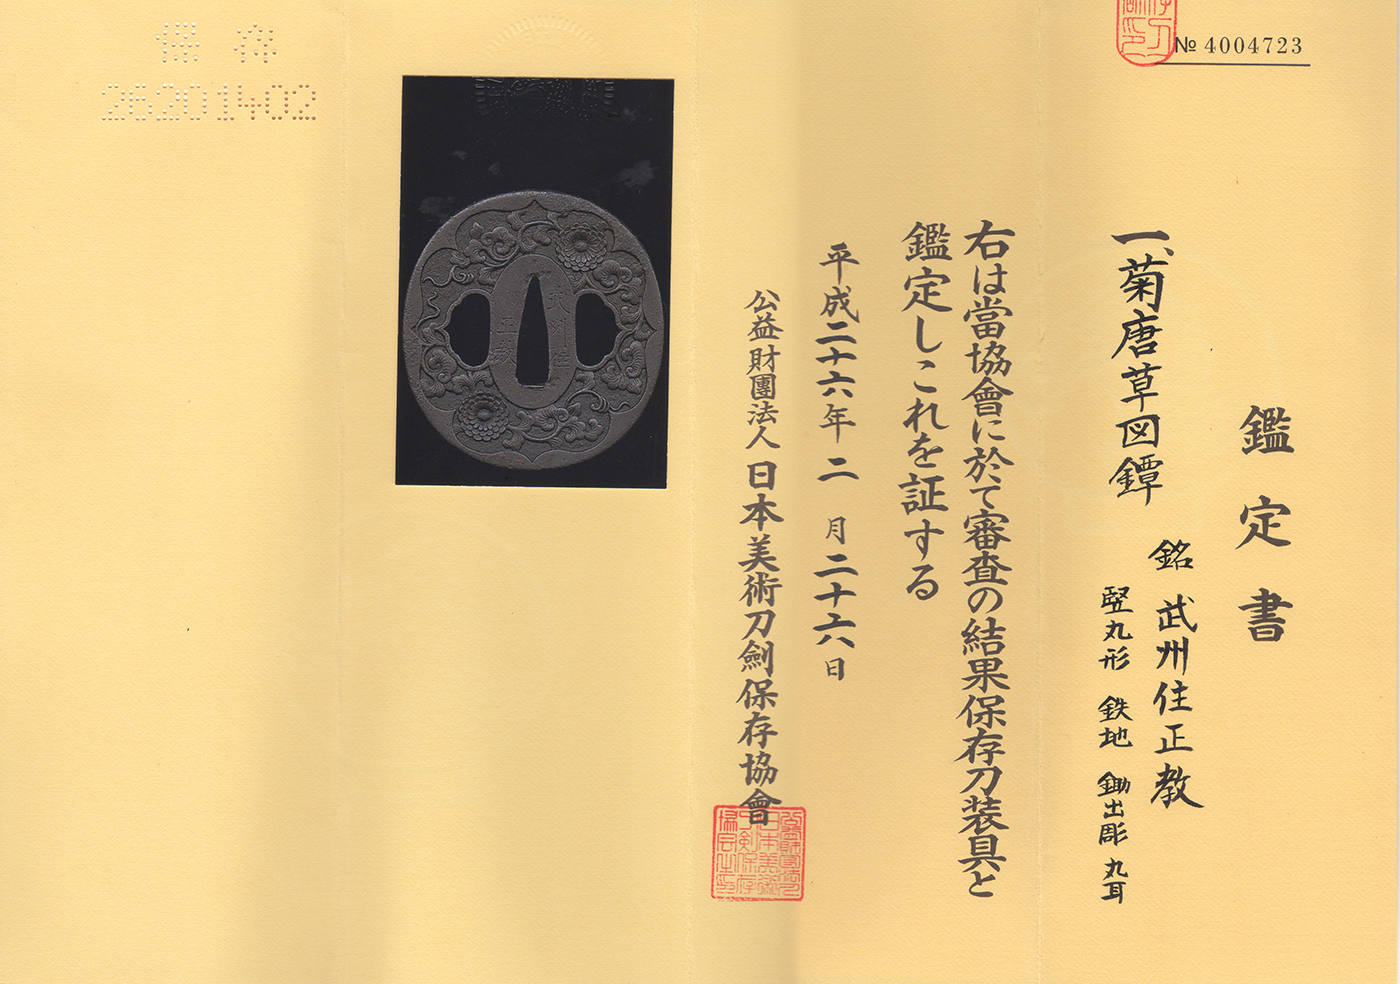 № 4004723
鑑定書
一、菊唐草図鐔
銘 武州住正教
竪丸形 鉄地 鋤出彫 丸耳
右は當協會に於て審査の結果保存刀装具と
鑑定しこれを証する
平成二十六年二月二十六日
公益財團法人日本美術刀劍保存協會
武州住
正教
保存
26201402